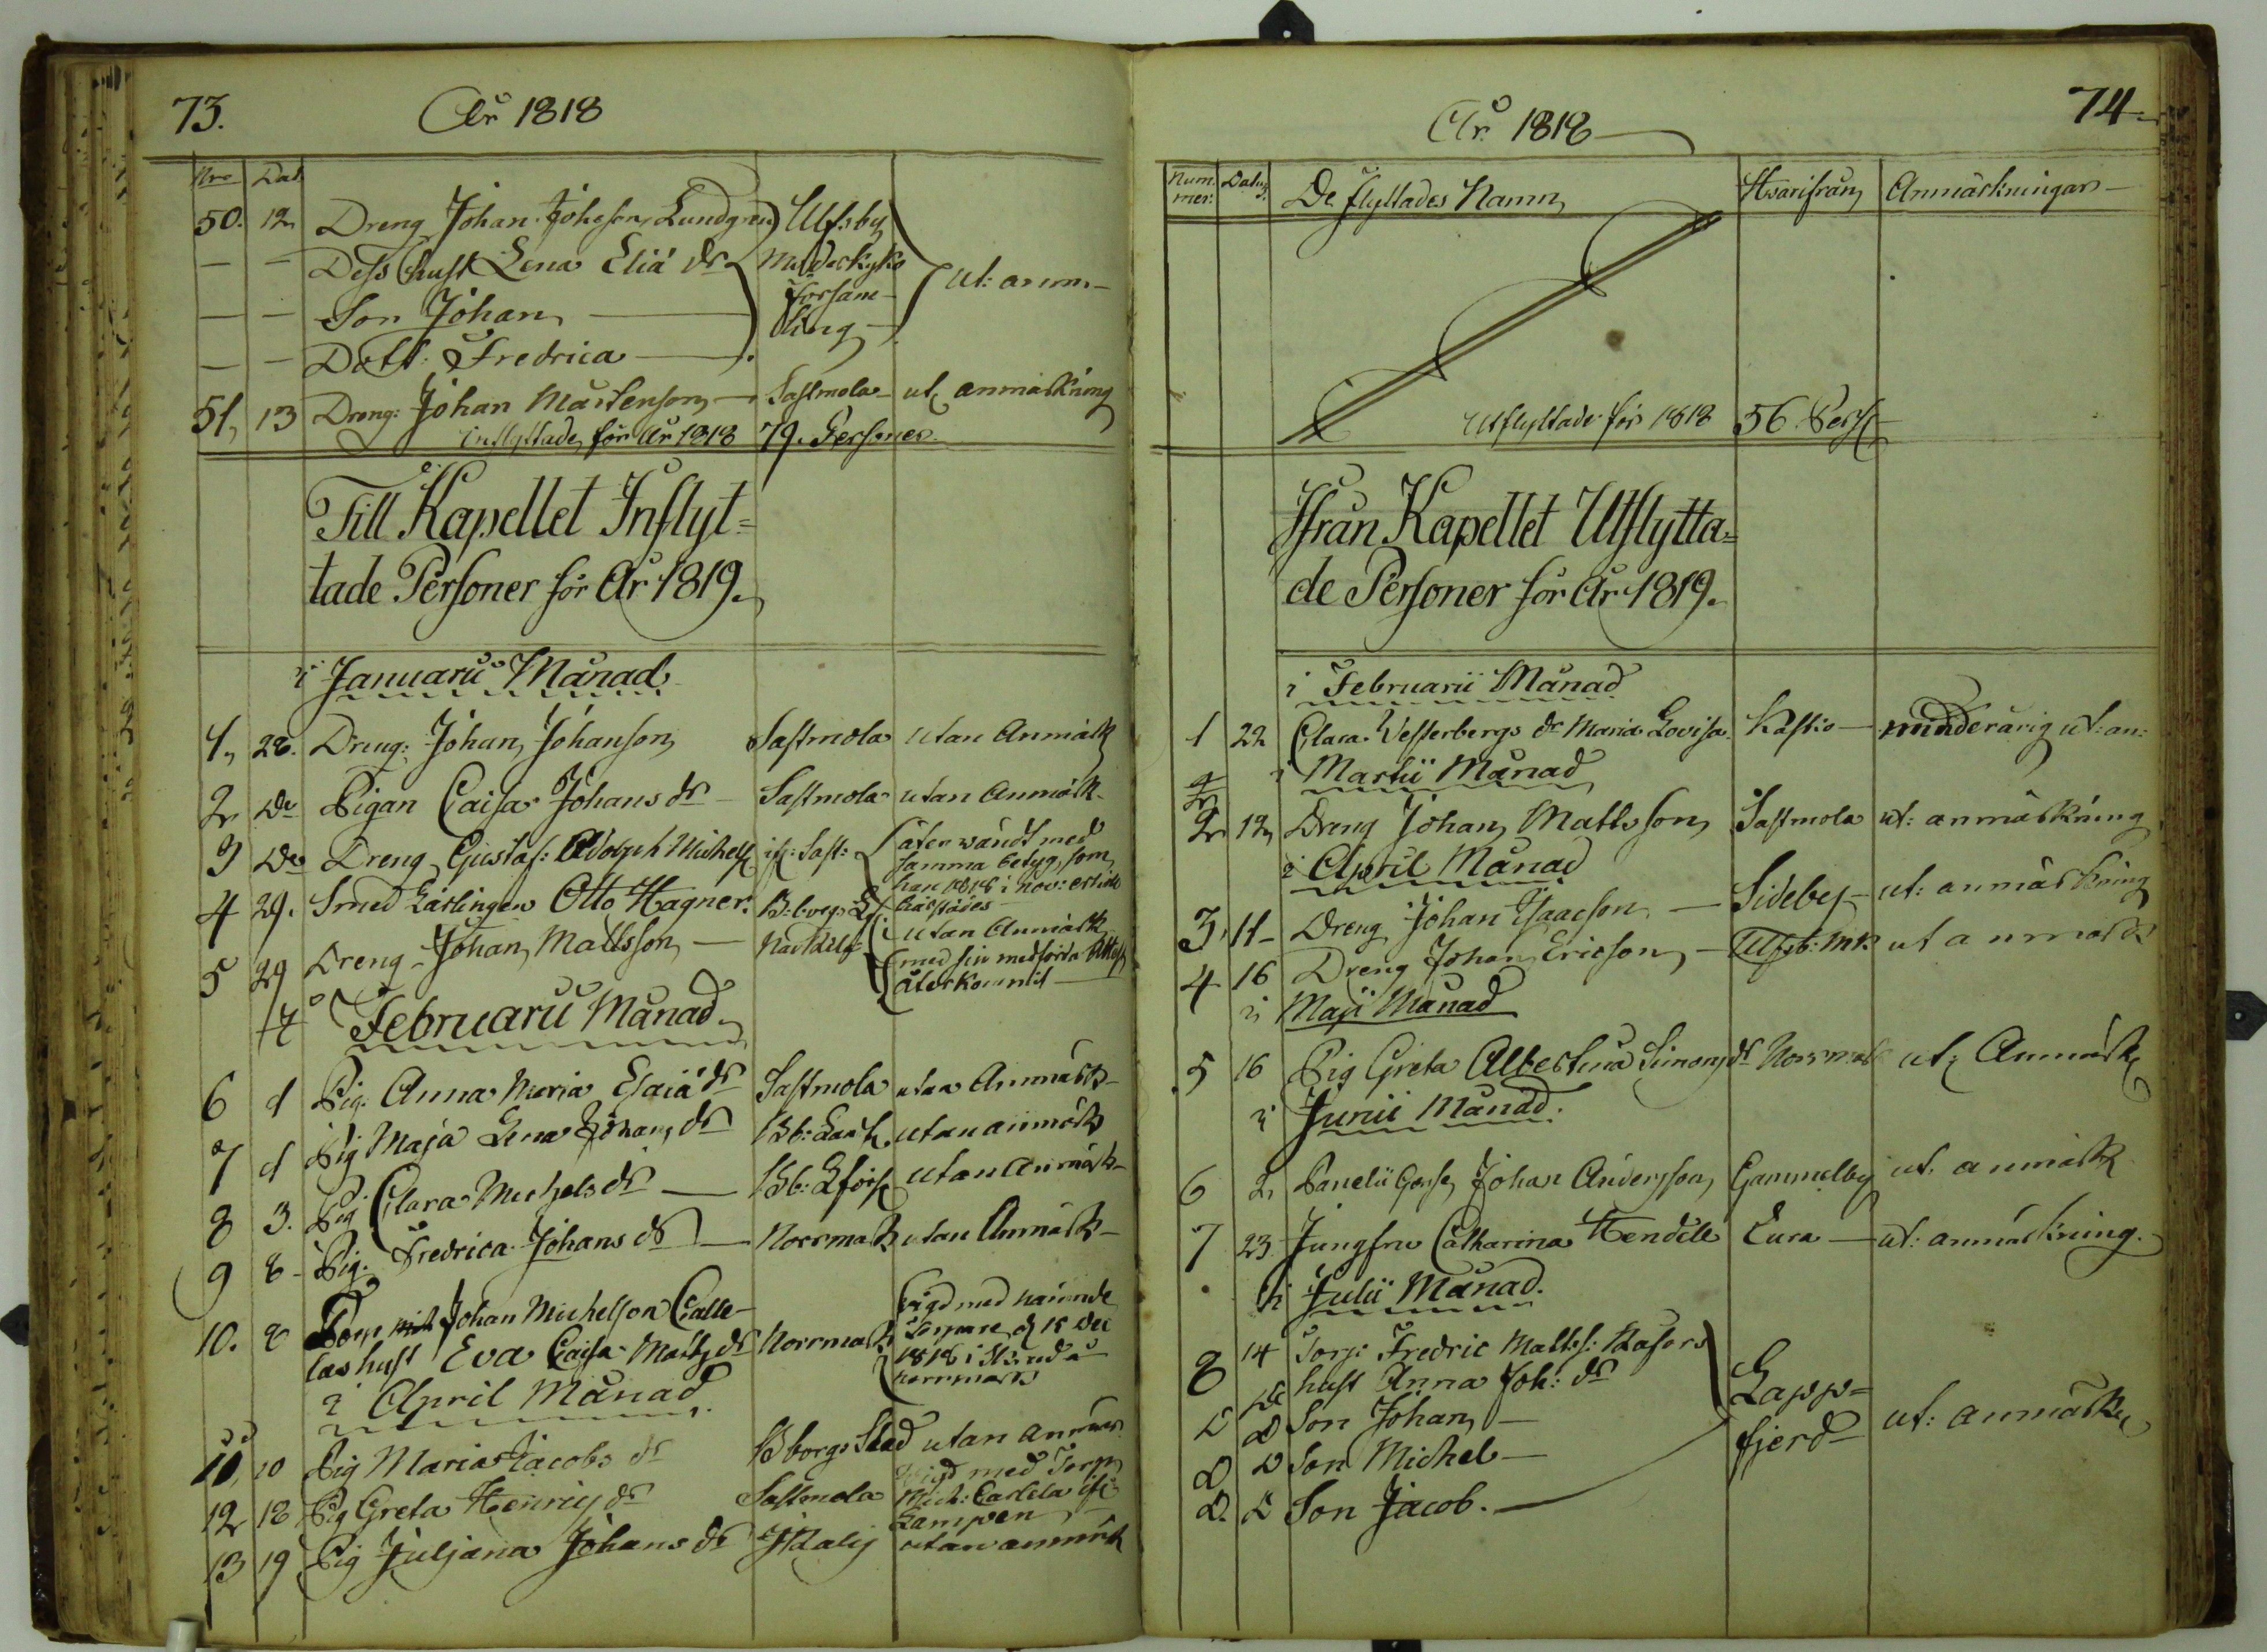 73.
År 1818
Nro Dat
50. 12 Dreng Johan Johesson Lundgren Ulfsby
— — Dess hust Lena Eliæ dr
— — Son Johan — församling — ut: anm. —
— — Dott: Fredrica —
51, 13 Dreng: Johan Mårtenson — Sastmola — ut anmärkning
Inflyttade för År 1818 79. Personer.
Till Kapellet Inflyt=
tade Personer för År 1819.
i Januarii Månad
1, 28. Dreng: Johan Johanson Sastmola utan Anmärk
2 Do Pigan Caisa Johans dr Sastmola utan Anmärk
3 Do Dreng Gustaf: Adolph Michels if: Sast: återvändt med
samma betyg, som
han 1818 i Nov:
4 29. Smed Lärlingen Otto Hagner. utan Anmärk
5 29 Dreng Johan Mattsson — med sin medförda Attest
återkommit —
i Februarii Månad
6 1 Pig: Anna Maria Esaiæ dr Sastmola utan Anmärk
7 1 Pig Maja Lena Johans dr utan anmärk
8 3. Pig Clara Michels dr — utan anmärk
9 8 — Pig. Fredrica Johans dr — Norrmark utan Anmärk —
10. 8 Torp Johan Michelson Calle-
las hust Eva Caisa Matts dr Norrmark vigd med nämnde
Torpare d 15 Dec
1818 i
Norrmark
i April Månad
11, 10 Pig Maria Jacobs dr Bborgs Stad utan anmär
12 18 Pig Greta Henrics dr Sastmola vigd med Torp
Mich:
Lampen
13 19 Pig Juljana Johans dr utan anmärk
74.
År 1818
Nummer. Datum De flyttades Namn Hvarifrån Anmärkningar —
Utflyttade för 1818 56. Pers
Ifrån Kapellet Utflytta=
de Personer för År 1819.
i Februarii Månad
1 22 Clara Vesterbergs dr Maria Lovisa Kasko — minderårig ut: an:
i Martii Månad
2 12 Dreng Johan Mattsson Sastmola ut: anmärkning
i April Månad
3, 11 — Dreng Johan Isaacson — Sideby — ut: anmärkning
4 16 Dreng Johan Ericson — Ulfsb: Mk. ut anmärk
i Maji Månad
5 16 Pig Greta Albertina Simons dr Norrmark ut: Anmärk
i Junii Månad.
6 2 Johan Andersson Gammelby ut. anmärk
7 23 Jungfru Catharina Hendele Eura — ut: anmärkning.
i Julii Månad.
8 14 Torp: Fredric Matts:
Do hust Anna Joh: dr Lapp=
D D Son Johan — fjerd ut: anmärk
D D Son Michel —
D. D Son Jacob. —